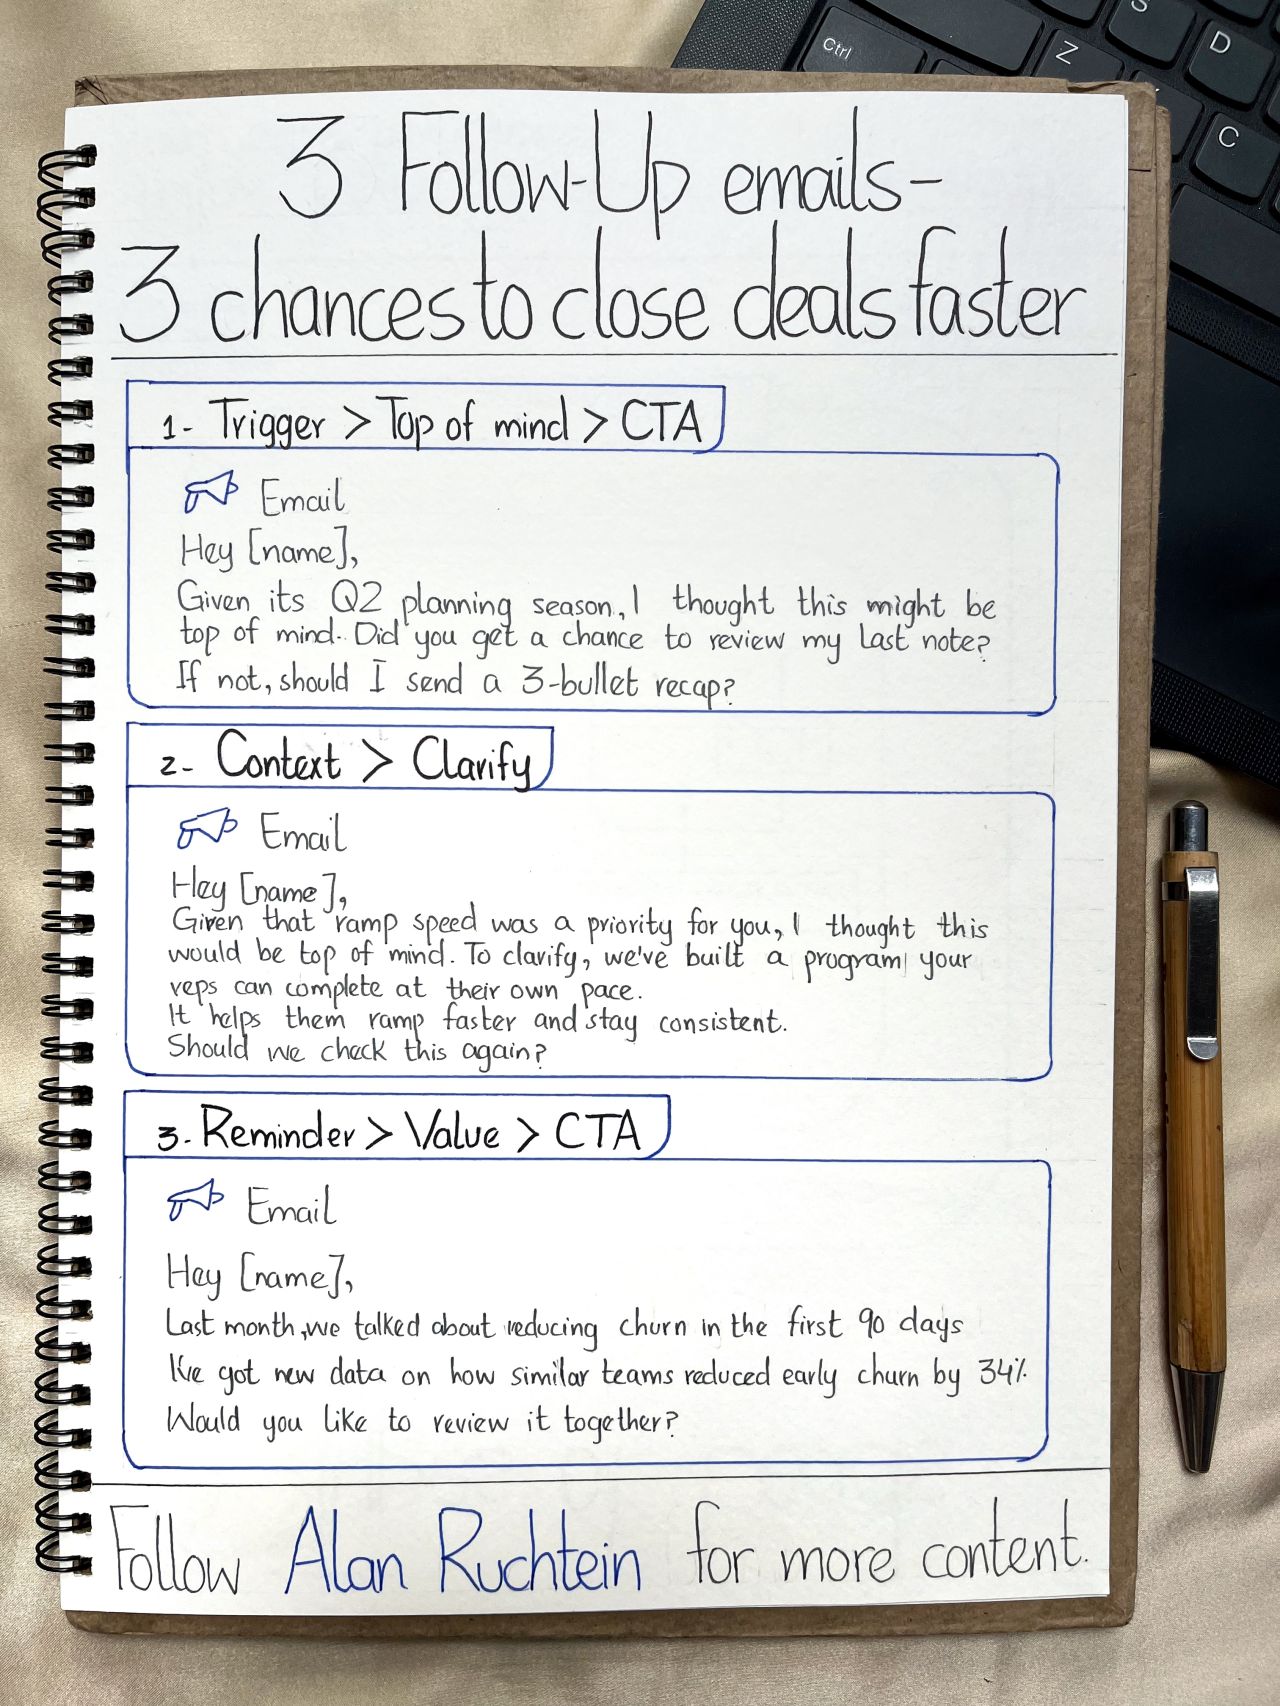 Ctrl
S
Z
D
C
3 Follow-Up emails-
3 chances to close deals faster
1- Trigger > Top of mind > CTA
Email
Hey [name],
Given its Q2 planning season, I thought this might be
top of mind. Did you get a chance to review my last note?
If not, should I send a 3-bullet recap?
2- Context > Clarify
Email
Hey [name],
Given that ramp speed was a priority for you, I thought this
would be top of mind. To clarify, we've built a program your
reps can complete at their own pace.
It helps them ramp faster and stay consistent.
Should we check this again?
3. Reminder > Value > CTA
Email
Hey [name],
Last month, we talked about reducing churn in the first 90 days
I've got new data on how similar teams reduced early churn by 34%
Would you like to review it together?
Follow Alan Ruchtein for more content.